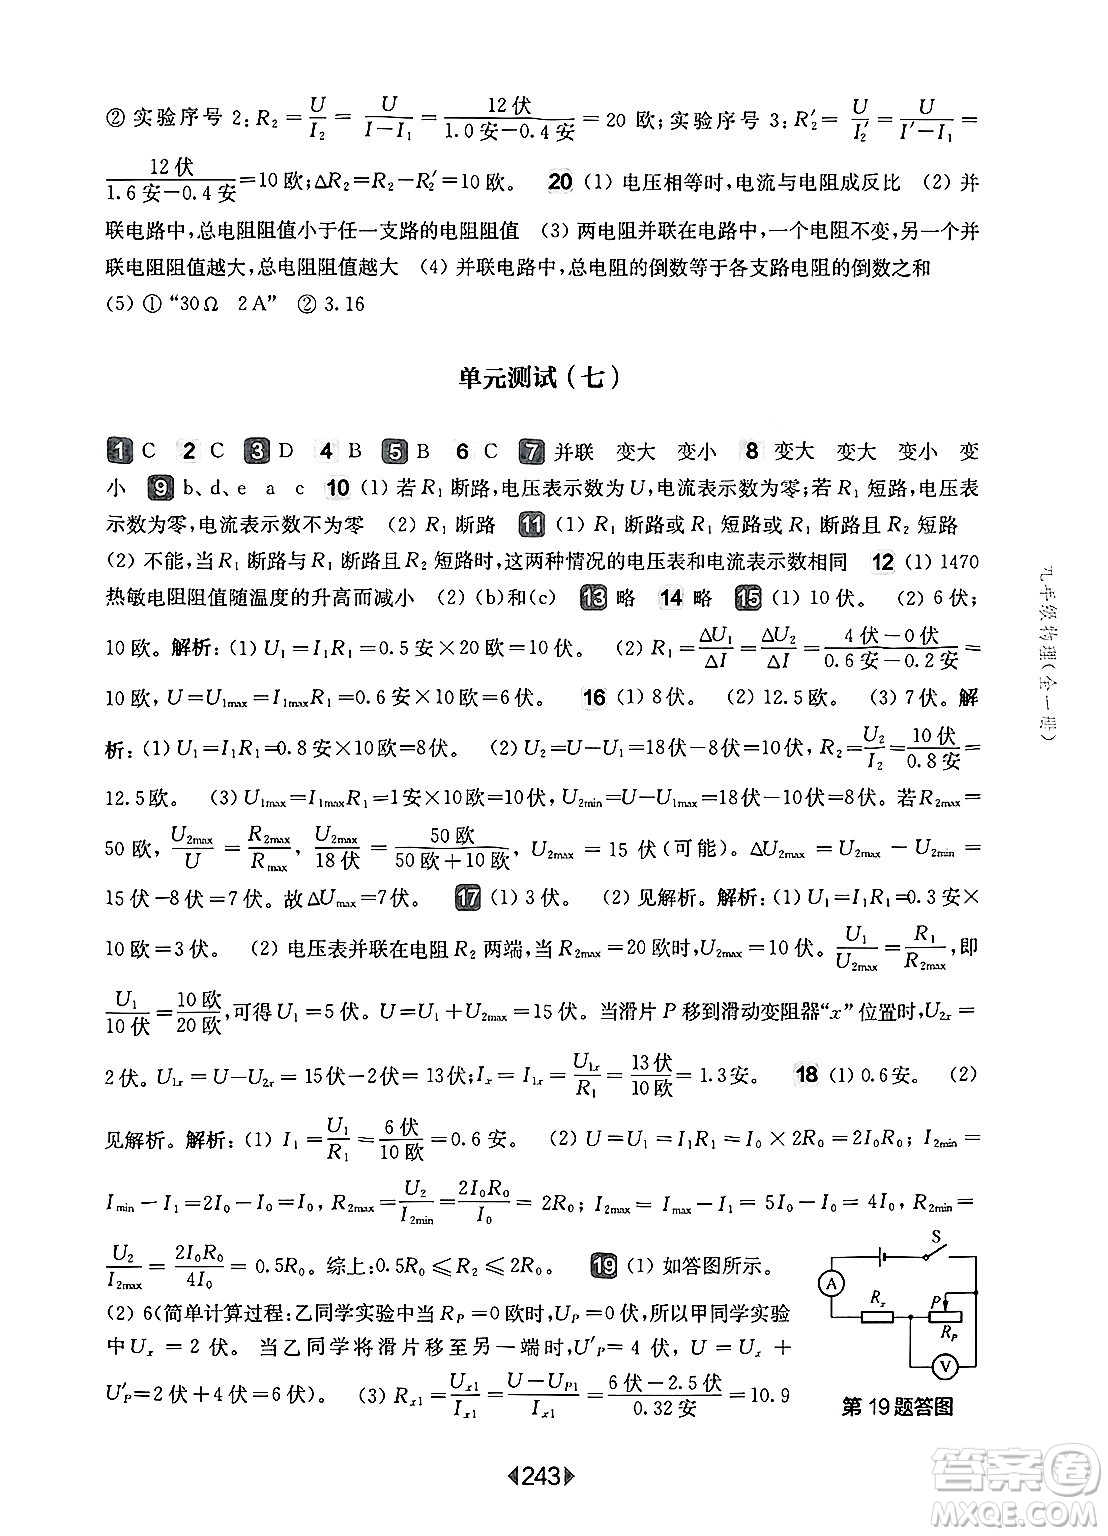 ② 实验序号 2:R₂=U/I₂=U/(I-I₁)=12伏/(1.0安-0.4安)=20欧;实验序号 3:R₂′=U/I₂′=U/(I′-I₁)=
12伏/(1.6安-0.4安)=10欧;ΔR₂=R₂-R₂′=10欧。 20 (1) 电压相等时,电流与电阻成反比 (2) 并
联电路中,总电阻阻值小于任一支路的电阻阻值 (3) 两电阻并联在电路中,一个电阻不变,另一个并
联电阻阻值越大,总电阻阻值越大 (4) 并联电路中,总电阻的倒数等于各支路电阻的倒数之和
(5) ① “30Ω 2A” ② 3.16
单元测试(七)
1 C 2 C 3 D 4 B 5 B 6 C 7 并联 变大 变小 8 变大 变大 变小 变
小 9 b、d、e a c 10 (1) 若 R₁ 断路,电压表示数为 U,电流表示数为零;若 R₁ 短路,电压表
示数为零,电流表示数不为零 (2) R₁ 断路 11 (1) R₁ 断路或 R₁ 短路或 R₁ 断路且 R₂ 短路
(2) 不能,当 R₁ 断路与 R₁ 断路且 R₂ 短路时,这两种情况的电压表和电流表示数相同 12 (1) 1470
热敏电阻阻值随温度的升高而减小 (2) (b)和(c) 13 略 14 略 15 (1) 10伏。 (2) 6伏;
10欧。解析:(1) U₁=I₁R₁=0.5安×20欧=10伏。 (2) R₁=ΔU₁/ΔI=ΔU₂/ΔI=(4伏-0伏)/(0.6安-0.2安)=
10欧,U=U₁max=I₁maxR₁=0.6安×10欧=6伏。 16 (1) 8伏。 (2) 12.5欧。 (3) 7伏。解
析:(1) U₁=I₁R₁=0.8安×10欧=8伏。 (2) U₂=U-U₁=18伏-8伏=10伏,R₂=U₂/I₂=10伏/0.8安=
12.5欧。 (3) U₁max=I₁maxR₁=1安×10欧=10伏,U₂min=U-U₁max=18伏-10伏=8伏。若R₂max=
50欧,U₂max/U=R₂max/Rmax,U₂max/18伏=50欧/(50欧+10欧),U₂max=15伏(可能)。ΔU₂max=U₂max-U₂min=
15伏-8伏=7伏。故ΔUmax=7伏。 17 (1) 3伏。 (2) 见解析。解析:(1) U₁=I₁R₁=0.3安×
10欧=3伏。 (2) 电压表并联在电阻 R₂ 两端,当 R₂max=20欧时,U₂max=10伏。U₁/U₂max=R₁/R₂max,即
U₁/10伏=10欧/20欧,可得U₁=5伏。U=U₁+U₂max=15伏。当滑片 P 移到滑动变阻器“x”位置时,U₂x=
2伏。U₁x=U-U₂x=15伏-2伏=13伏;Ix=I₁x=U₁x/R₁=13伏/10欧=1.3安。 18 (1) 0.6安。 (2)
见解析。解析:(1) I₁=U₁/R₁=6伏/10欧=0.6安。 (2) U=U₁=I₁R₁=I₀×2R₀=2I₀R₀;I₂min=
Imin-I₁=2I₀-I₀=I₀,R₂max=U₂/I₂min=2I₀R₀/I₀=2R₀;I₂max=Imax-I₁=5I₀-I₀=4I₀,R₂min=
U₂/I₂max=2I₀R₀/4I₀=0.5R₀。综上:0.5R₀≤R₂≤2R₀。 19 (1) 如答图所示。
(2) 6(简单计算过程:乙同学实验中当 RP=0欧时,UP=0伏,所以甲同学实验
中Ux=2伏。当乙同学将滑片移至另一端时,U′P=4伏,U=Ux+
U′P=2伏+4伏=6伏)。 (3) Rx1=Ux1/Ix1=(U-UP1)/Ix1=(6伏-2.5伏)/0.32安=10.9
S
A
Rx
P
RP
V
第19题答图
九年级物理(全一册)
243
答案圈
MXQE.COM